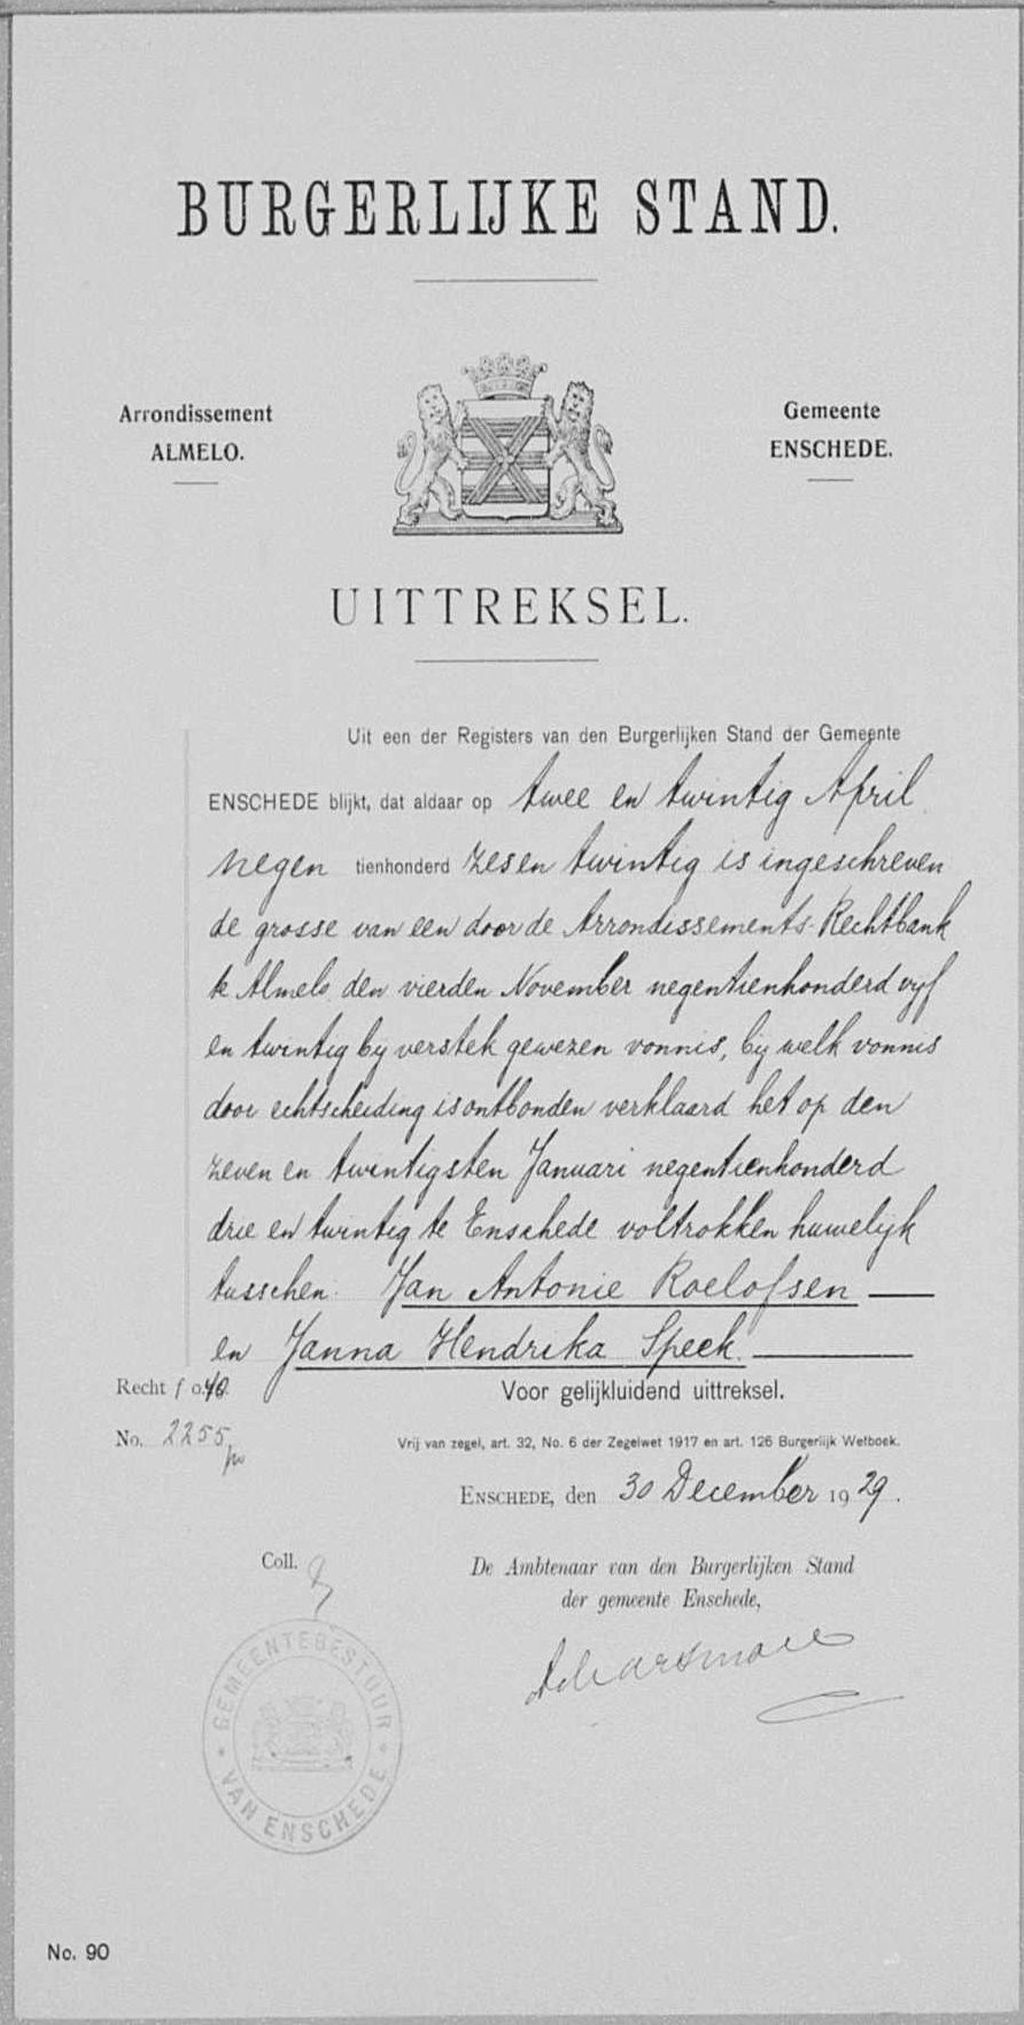 BURGERLIJKE STAND.
Arrondissement
ALMELO.
Gemeente
ENSCHEDE.
UITTREKSEL.
Uit een der Registers van den Burgerlijken Stand der Gemeente
ENSCHEDE blijkt, dat aldaar op twee en twintig April
negen tienhonderd zes en twintig is ingeschreven
de grosse van een door de Arrondissements-Rechtbank
te Almelo den vierden November negentienhonderd vijf
en twintig bij verstek gewezen vonnis, bij welk vonnis
door echtscheiding is ontbonden verklaard het op den
zeven en twintigsten Januari negentienhonderd
drie en twintig te Enschede voltrokken huwelijk
tusschen Jan Antonie Roelofsen
en Janna Hendrika Speek.
Recht f 0.40.
Voor gelijkluidend uittreksel.
No. 2255
Vrij van zegel, art. 32, No. 6 der Zegelwet 1917 en art. 126 Burgerlijk Wetboek.
ENSCHEDE, den 30 December 1929.
Coll.
De Ambtenaar van den Burgerlijken Stand
der gemeente Enschede,
GEMEENTEBESTUUR
VAN ENSCHEDE
No. 90